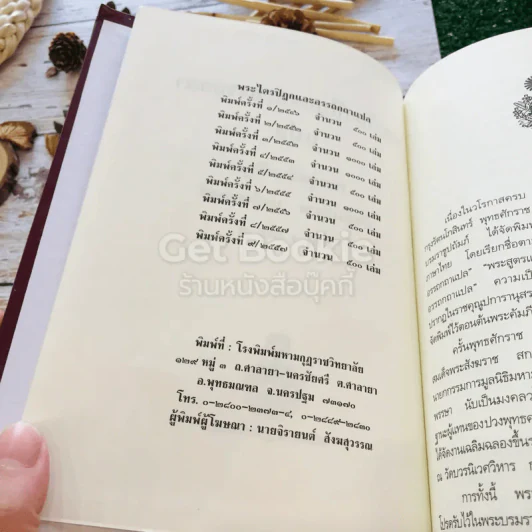 พระไตรปิฎกและอรรถกถาแปล
พิมพ์ครั้งที่ ๑/๒๕๔๖ จำนวน ๕๐๐ เล่ม
พิมพ์ครั้งที่ ๒/๒๕๕๒ จำนวน ๕๐๐ เล่ม
พิมพ์ครั้งที่ ๓/๒๕๕๒ จำนวน ๑๐๐๐ เล่ม
พิมพ์ครั้งที่ ๔/๒๕๕๓ จำนวน ๑๐๐๐ เล่ม
พิมพ์ครั้งที่ ๕/๒๕๕๔ จำนวน ๕๐๐ เล่ม
พิมพ์ครั้งที่ ๖/๒๕๕๕ จำนวน ๑๐๐๐ เล่ม
พิมพ์ครั้งที่ ๗/๒๕๕๖ จำนวน ๕๐๐ เล่ม
พิมพ์ครั้งที่ ๘/๒๕๕๗ จำนวน ๕๐๐ เล่ม
พิมพ์ครั้งที่ ๙/๒๕๕๗ จำนวน ๕๐๐ เล่ม
Get Bookie
ร้านหนังสือบุ๊คกี้
พิมพ์ที่ : โรงพิมพ์มหามกุฏราชวิทยาลัย
๑๒๙ หมู่ ๓ ถ.ศาลายา-นครชัยศรี ต.ศาลายา
อ.พุทธมณฑล จ.นครปฐม ๗๓๑๗๐
โทร. ๐-๒๘๐๐-๒๓๗๓-๔, ๐-๒๔๔๙-๒๘๓๐
ผู้พิมพ์ผู้โฆษณา : นายจิรายนต์ สังฆสุวรรณ
เนื่องในวโรกาสครบ
กรุงรัตนโกสินทร์ พุทธศักราช
ได้จัดพิมพ์
ภาษาไทย โดยเรียกชื่อตา
อรรถกถาแปล" "พระสูตรแ
อรรถกถาแปล" ความเป็
ปรากฏในราชคุณูปการานุสร
จัดพิมพ์ไว้ตอนต้นพระคัมภี
ครั้นพุทธศักราช
สมเด็จพระสังฆราช สก
นายกกรรมการมูลนิธิมหาม
พรรษา นับเป็นมงคลว
ฐานะผู้แทนของปวงพุทธศ
ได้จัดงานเฉลิมฉลองขึ้น
ณ วัดบวรนิเวศวิหาร
การทั้งนี้ พระ
โปรดรับไว้ในพระบรมรา